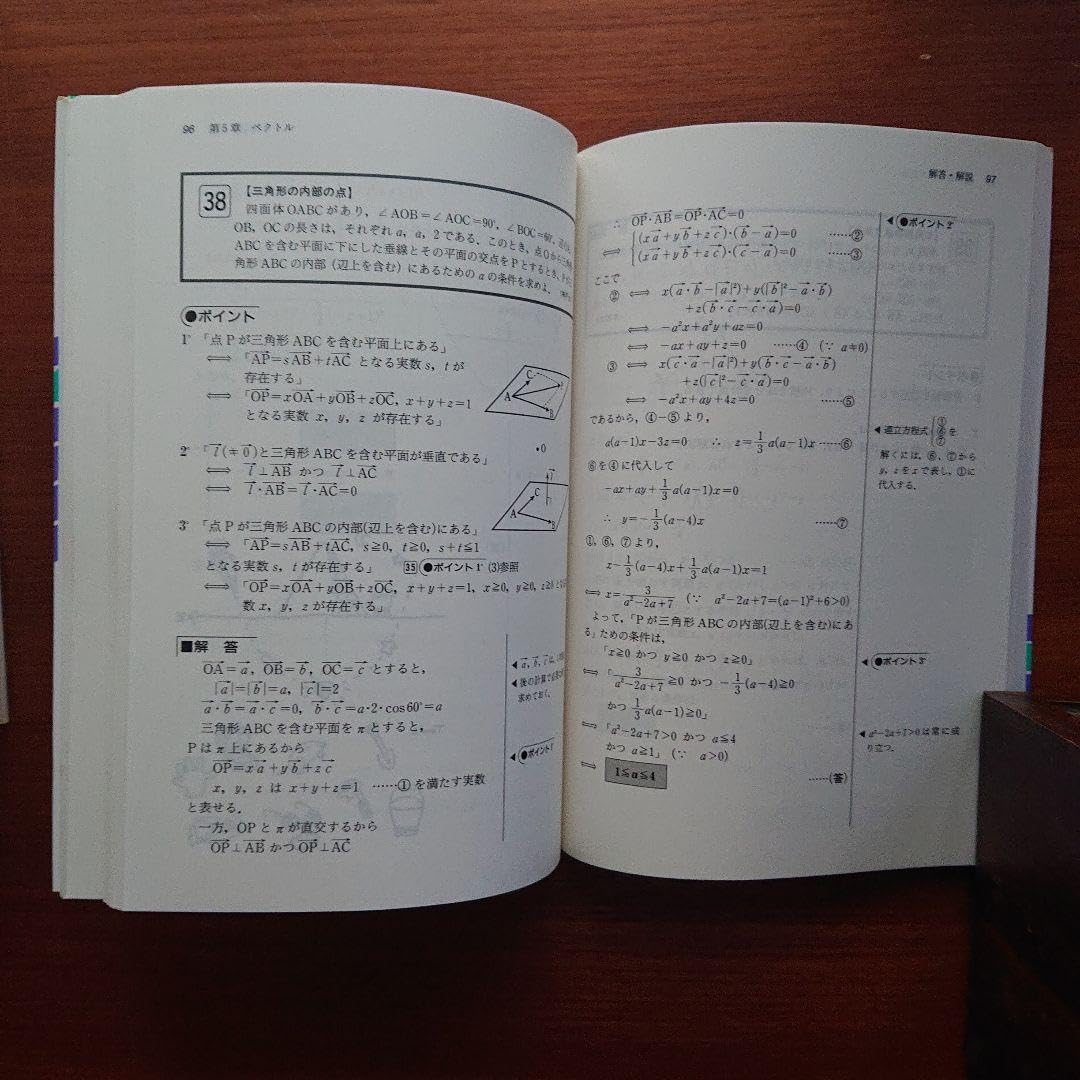 96 第5章 ベクトル
38
【三角形の内部の点】
四面体OABCがあり，∠AOB＝∠AOC＝90°，∠BOC＝60°，
OB，OCの長さは，それぞれ a，a，2 である．このとき，点Oから三角形
ABCを含む平面に下にした垂線とその平面の交点をPとするとき，
角形ABCの内部（辺上を含む）にあるための a の条件を求めよ．
●ポイント
1° 「点Pが三角形ABCを含む平面上にある」
⟺ 「AP→＝sAB→＋tAC→ となる実数 s，t が
存在する」
⟺ 「OP→＝xOA→＋yOB→＋zOC→，x＋y＋z＝1
となる実数 x，y，z が存在する」
A
B
C
・O
2° 「l→（≠0→）と三角形ABCを含む平面が垂直である」
⟺ l→⊥AB→ かつ l→⊥AC→
⟺ l→・AB→＝l→・AC→＝0
l→
A
B
C
3° 「点Pが三角形ABCの内部(辺上を含む)にある」
⟺ 「AP→＝sAB→＋tAC→，s≧0，t≧0，s＋t≦1
となる実数 s，t が存在する」 35 ●ポイント1° (3)参照
⟺ 「OP→＝xOA→＋yOB→＋zOC→，x＋y＋z＝1，x≧0，y≧0，z≧0 と
数 x，y，z が存在する」
■解 答
OA→＝a→，OB→＝b→，OC→＝c→ とすると，
|a→|＝|b→|＝a，|c→|＝2
a→・b→＝a→・c→＝0，b→・c→＝a・2・cos60°＝a
◀ a→，b→，c→
◀ 後の計算で
求めておく．
三角形ABCを含む平面を π とすると，
Pは π 上にあるから
◀ ●ポイント1°
OP→＝xa→＋yb→＋zc→
x，y，z は x＋y＋z＝1 ……① を満たす実数
と表せる．
一方，OPと π が直交するから
OP→⊥AB→ かつ OP→⊥AC→
解答・解説 97
∴ OP→・AB→＝OP→・AC→＝0
◀ ●ポイント2°
⟺ (xa→＋yb→＋zc→)・(b→−a→)＝0 ……②
(xa→＋yb→＋zc→)・(c→−a→)＝0 ……③
ここで
② ⟺ x(a→・b→−|a→|²)＋y(|b→|²−a→・b→)
＋z(b→・c→−c→・a→)＝0
⟺ −a²x＋a²y＋az＝0
⟺ −ax＋ay＋z＝0 ……④ (∵ a≠0)
③ ⟺ x(c→・a→−|a→|²)＋y(b→・c→−a→・b→)
＋z(|c→|²−c→・a→)＝0
⟺ −a²x＋ay＋4z＝0 ……⑤
であるから，④−⑤より，
a(a−1)x−3z＝0 ∴ z＝1/3 a(a−1)x ……⑥
◀ 連立方程式 ① ⑥ ⑦ を
解くには，⑥，⑦から
y，z を x で表し，①に
代入する．
⑥を④に代入して
−ax＋ay＋1/3 a(a−1)x＝0
∴ y＝−1/3(a−4)x ……⑦
①，⑥，⑦より，
x−1/3(a−4)x＋1/3 a(a−1)x＝1
⟺ x＝3/(a²−2a＋7) (∵ a²−2a＋7＝(a−1)²＋6>0)
よって，「Pが三角形ABCの内部(辺上を含む)にあ
る」ための条件は，
「x≧0 かつ y≧0 かつ z≧0」
◀ ●ポイント3°
⟺ 「3/(a²−2a＋7)≧0 かつ −1/3(a−4)≧0
かつ 1/3 a(a−1)≧0」
⟺ 「a²−2a＋7>0 かつ a≦4
かつ a≧1」 (∵ a>0)
◀ a²−2a＋7>0 は常に成
り立つ．
⟺ 1≦a≦4 ……(答)